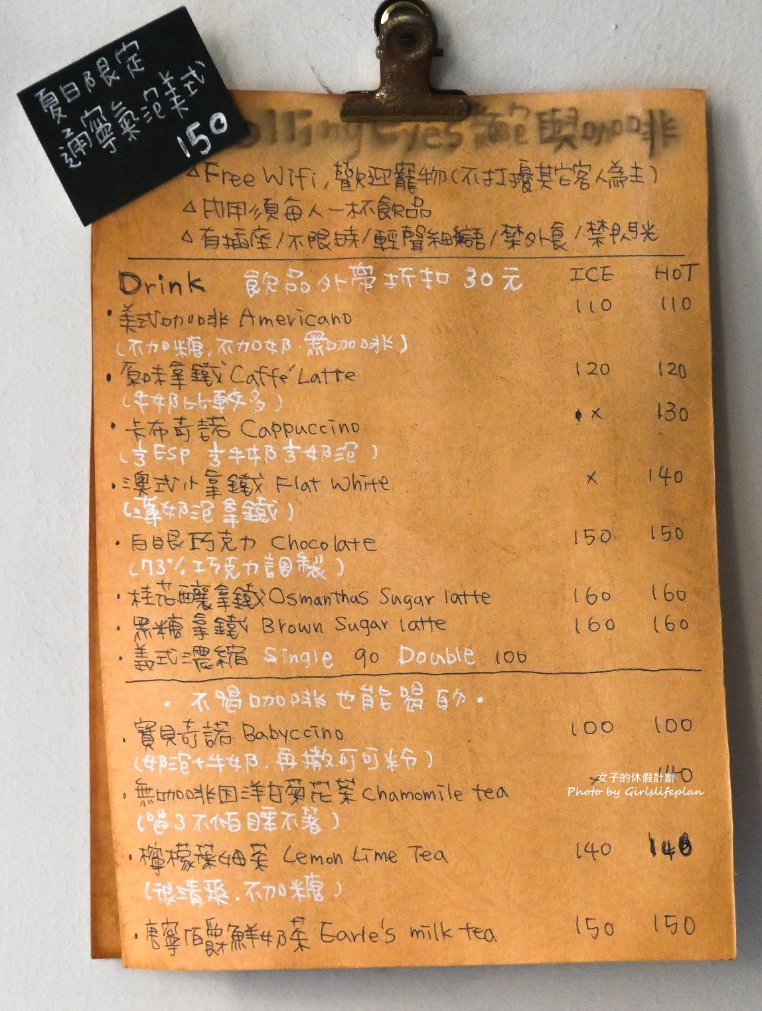 夏日限定
通寧氣泡美式
150
Rolling Eyes 與咖啡
△ Free Wifi, 歡迎寵物(不打擾其它客人為主)
△ 內用須每人一杯飲品
△ 有插座/不限時/輕聲細語/禁外食/禁閃光
Drink 飲品外帶折扣30元 ICE HOT
• 美式咖啡 Americano 110 110
(不加糖.不加奶.黑咖啡)
• 原味拿鐵 Caffe' Latte 120 120
(牛奶比較多)
• 卡布奇諾 Cappuccino x 130
(⅓ESP ⅓牛奶⅓奶泡)
• 澳式小拿鐵 Flat White x 140
(薄奶泡拿鐵)
• 白眼巧克力 Chocolate 150 150
(73%巧克力調製)
• 桂花釀拿鐵 Osmanthas Sugar latte 160 160
• 黑糖拿鐵 Brown Sugar latte 160 160
• 義式濃縮 Single 90 Double 100
• 不喝咖啡也能喝的 •
• 寶貝奇諾 Babyccino 100 100
(奶泡+牛奶.再撒可可粉)
• 無咖啡因洋甘菊花茶 Chamomile tea x 140
(喝了不怕睡不著)
女子的休假計劃
Photo by Girlslifeplan
• 檸檬葉綠茶 Lemon Lime Tea 140 140
(很清爽.不加糖)
• 唐寧伯爵鮮奶茶 Earle's milk tea 150 150